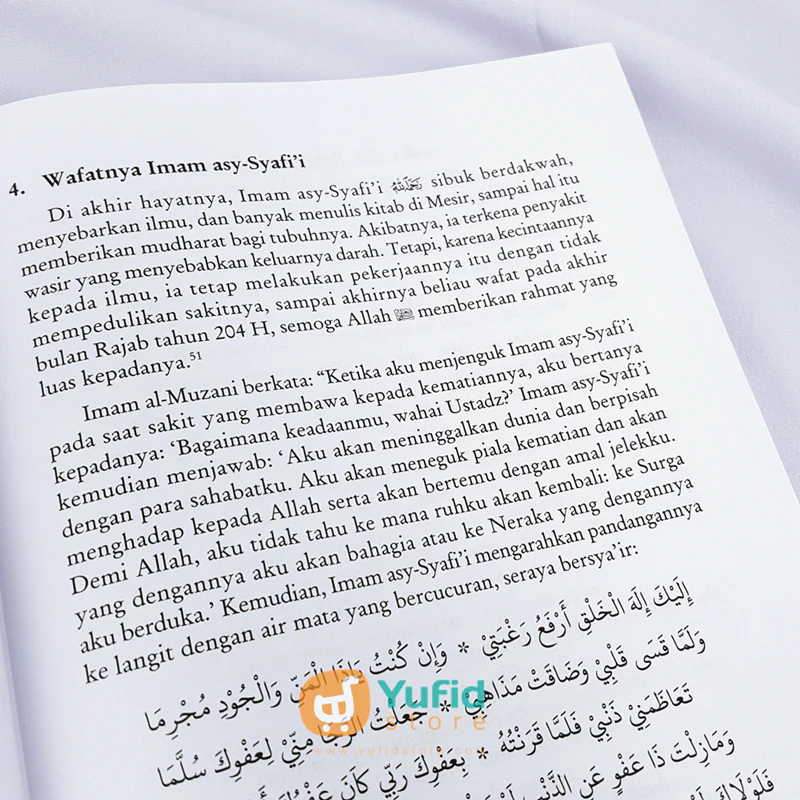 4. Wafatnya Imam asy-Syafi'i
Di akhir hayatnya, Imam asy-Syafi'i رحمه الله sibuk berdakwah,
menyebarkan ilmu, dan banyak menulis kitab di Mesir, sampai hal itu
memberikan mudharat bagi tubuhnya. Akibatnya, ia terkena penyakit
wasir yang menyebabkan keluarnya darah. Tetapi, karena kecintaannya
kepada ilmu, ia tetap melakukan pekerjaannya itu dengan tidak
mempedulikan sakitnya, sampai akhirnya beliau wafat pada akhir
bulan Rajab tahun 204 H, semoga Allah memberikan rahmat yang
luas kepadanya.51
Imam al-Muzani berkata: "Ketika aku menjenguk Imam asy-Syafi'i
pada saat sakit yang membawa kepada kematiannya, aku bertanya
kepadanya: 'Bagaimana keadaanmu, wahai Ustadz?' Imam asy-Syafi'i
kemudian menjawab: 'Aku akan meninggalkan dunia dan berpisah
dengan para sahabatku. Aku akan meneguk piala kematian dan akan
menghadap kepada Allah serta akan bertemu dengan amal jelekku.
Demi Allah, aku tidak tahu ke mana ruhku akan kembali: ke Surga
yang dengannya aku akan bahagia atau ke Neraka yang dengannya
aku berduka.' Kemudian, Imam asy-Syafi'i mengarahkan pandangannya
ke langit dengan air mata yang bercucuran, seraya bersya'ir:
إِلَيْكَ إِلَهَ الْخَلْقِ أَرْفَعُ رَغْبَتِيْ * وَإِنْ كُنْتُ يَاذَا الْمَنِّ وَالْجُوْدِ مُجْرِمَا
وَلَمَّا قَسَى قَلْبِيْ وَضَاقَتْ مَذَاهِبِيْ * جَعَلْتُ الرَّجَا مِنِّيْ لِعَفْوِكَ سُلَّمَا
تَعَاظَمَنِيْ ذَنْبِيْ فَلَمَّا قَرَنْتُهُ * بِعَفْوِكَ رَبِّيْ كَانَ عَفْوُكَ
وَمَازِلْتَ ذَا عَفْوٍ عَنِ الذَّنْبِ
فَلَوْلَاكَ
Yufid
store
www.yufidstore.com